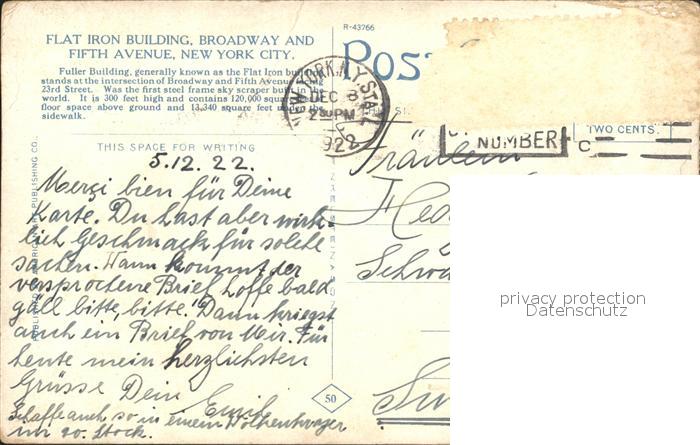 R-43766
FLAT IRON BUILDING, BROADWAY AND
FIFTH AVENUE, NEW YORK CITY.
Fuller Building, generally known as the Flat Iron
stands at the intersection of Broadway and Fifth Avenue
23rd Street. Was the first steel frame sky scraper built in the
world. It is 300 feet high and contains 120,000 square
floor space above ground and 13,340 square feet under the
sidewalk.
NEW YORK, N.Y. STA.
DEC 8
2 30 PM
1922
NUMBER
TWO CENTS.
THIS SPACE FOR WRITING
5.12.22.
Merçi bien für Deine
Karte. Du hast aber wirk-
lich Geschmack für solche
sachen. Wann kommt der
versprochene Brief, hoffe bald
gäll bitte, bitte. Dann kriegst
auch ein Brief von Mir. Für
heute mein herzlichsten
Grüsse Dein Emil
Schaffe auch so in einem Wolkenkrazer
im 20. Stock.
Fräulein
50
privacy protection
Datenschutz